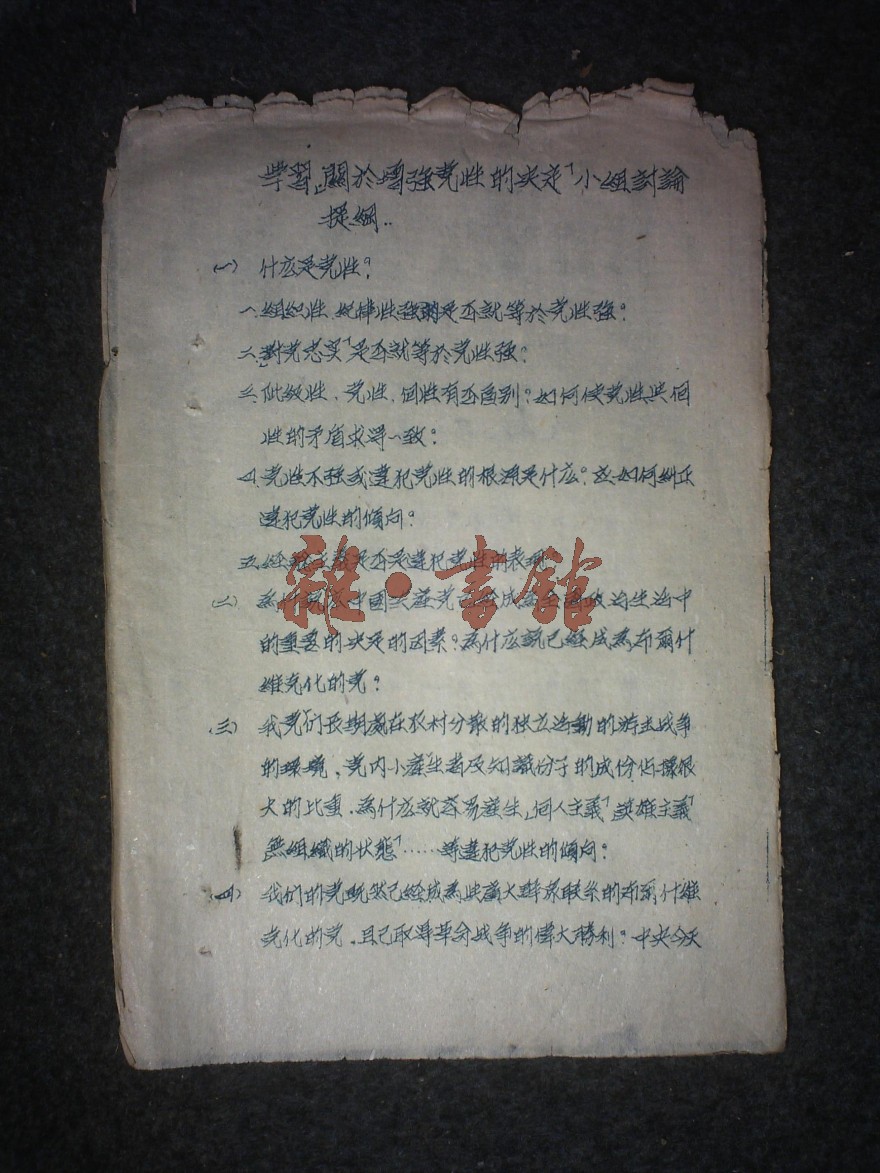 学習「關於增強党性的决定」小組討論
提綱..
(一) 什広是党性？
一、組织性、紀律性强的是否就等於党性强？
二、對党忠实是否就等於党性强？
三、阶級性、党性、個性有否區别？如何使党性與個
性的矛盾求得一致？
四、党性不强或違犯党性的根源是什広？如何糾正
違犯党性的傾向？
五、主義是否是違犯党性的表現
(二) 為什 中國共產党已經成為全國政治生活中
的重要的决定的因素？為什広説已經成為布爾什
維克化的党？
(三) 我党们長期處在农村分散的独立活動的游击战争
的環境，党内小產生者及知識份子的成份佔據很
大的比重，為什広就容易產生「個人主義」「英雄主義」
「無組織的状態」……等違犯党性的傾向？
(四) 我们的党既然已經成為與廣大群衆联系的布爾什維
克化的党，且已取得革命战争的偉大勝利？中央今天
雜·書館